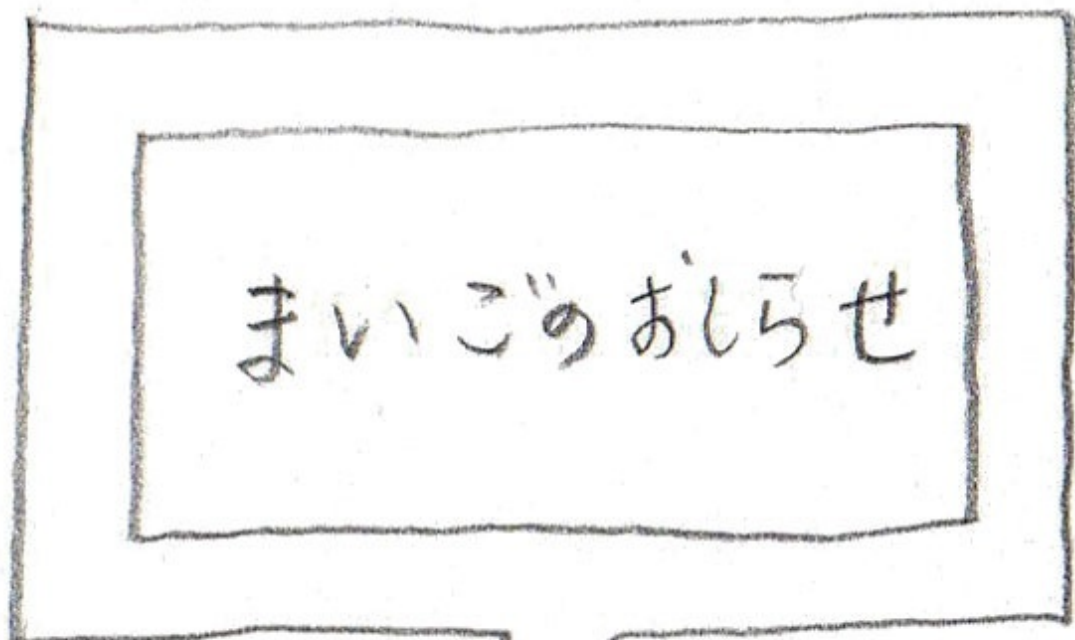 まいごのおしらせ